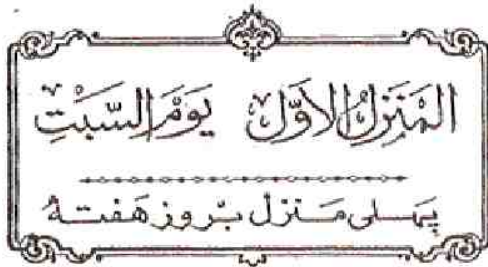 المَنزِلُ الاَوَّل يَومَ السَّبْتِ
پہلی منزل بروز هفته